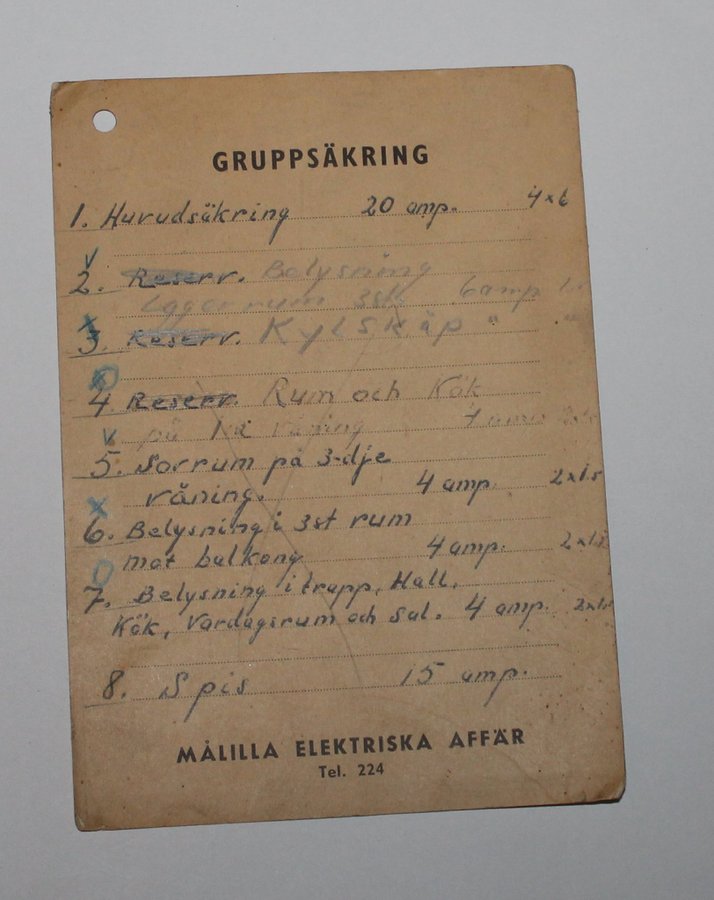 GRUPPSÄKRING
1. Huvudsäkring 20 amp. 4x6
v
2. Reserv. Belysning
Lagerrum 3st 6 amp
x
3. Reserv. Kylskåp "
4. Reserv. Rum och Kök
v på våning
5. Sovrum på 3-dje
x våning. 4 amp. 2x1.5
6. Belysning i 3st rum
mot balkong 4 amp. 2x1.5
7. Belysning i trapp, Hall,
Kök, Vardagsrum och Sal. 4 amp. 2x1.5
8. Spis 15 amp.
MÅLILLA ELEKTRISKA AFFÄR
Tel. 224